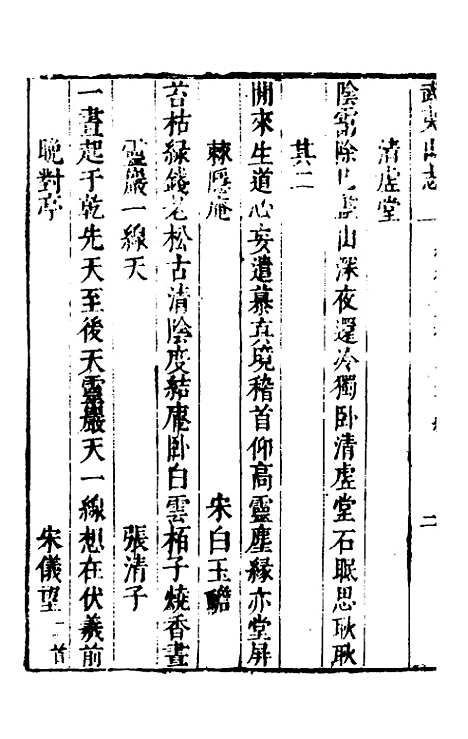 武夷山志 二
清虛堂
陰靄除山深夜還冷獨卧清虛堂石眠思耿耿
其二
閒來生道心妄遣慕真境稽首仰高靈塵緣亦堂屏
棘隱庵 宋白玉蟾
苔枯綠錢老松古清陰度結庵卧白雲栢子燒香晝
靈巖一線天 張清子
一畫起于乾先天至後天靈巖天一線想在伏羲前
晚對亭 宋儀望二首